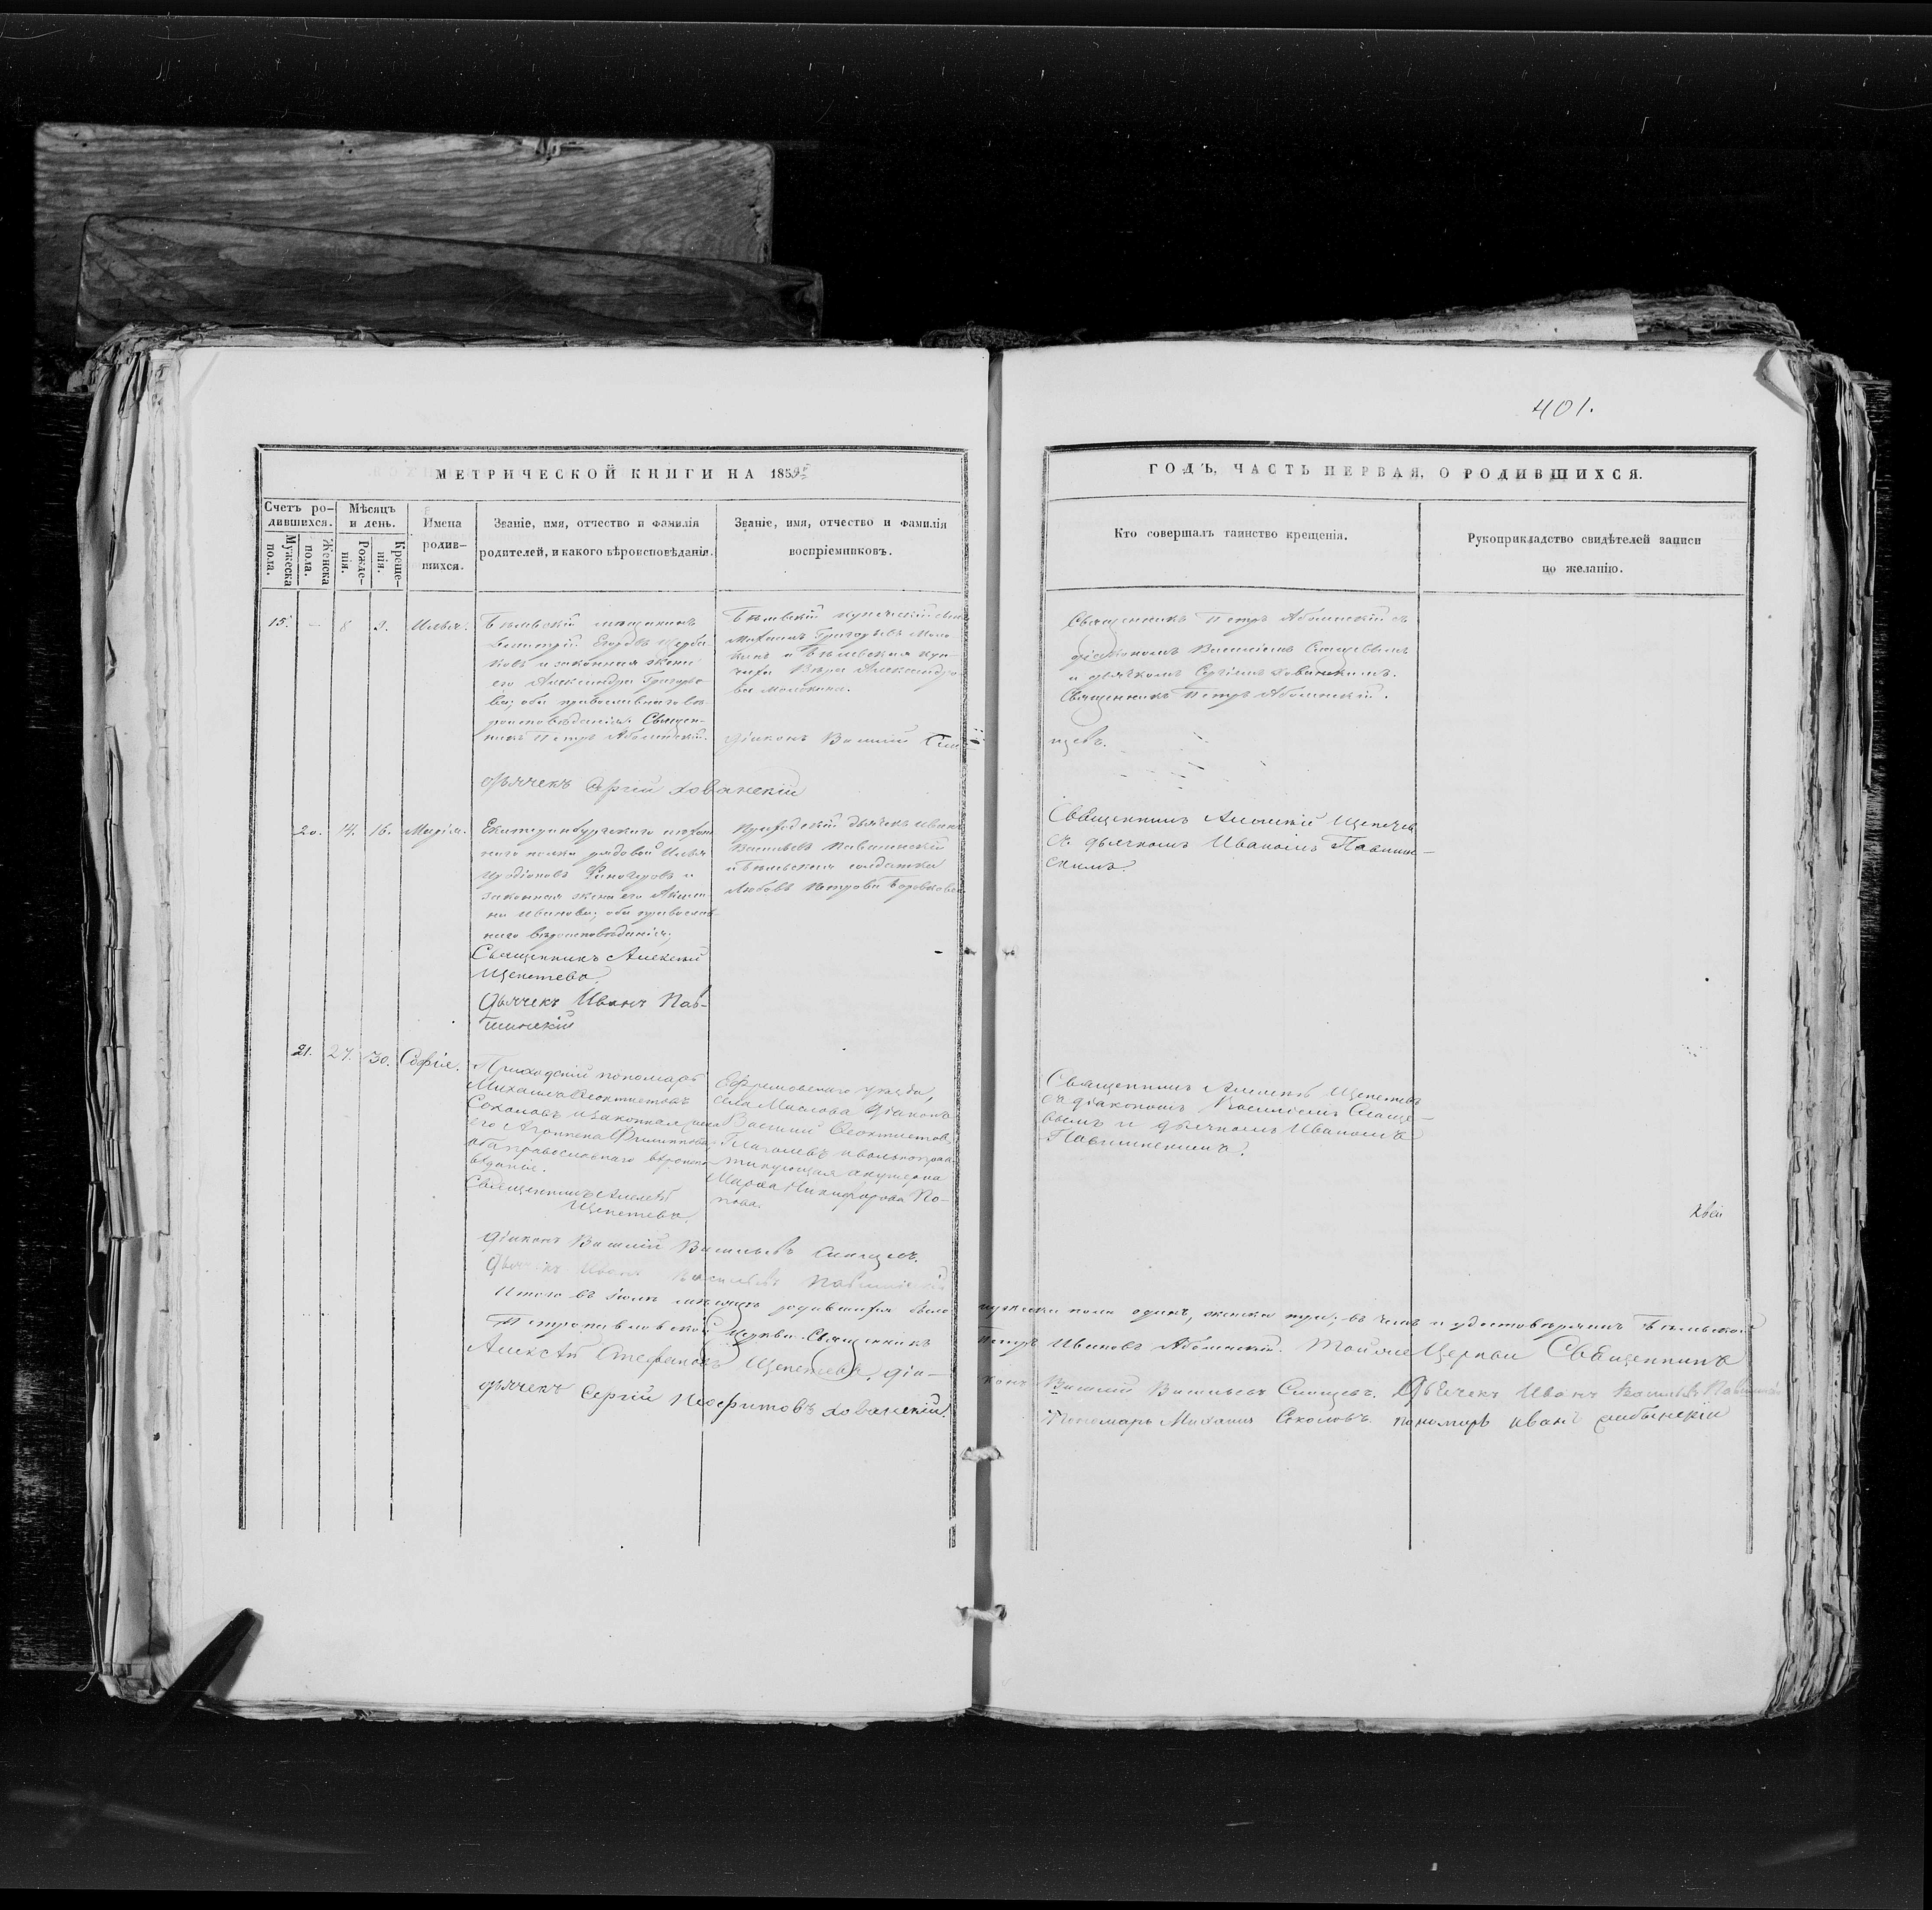 401.
МЕТРИЧЕСКОЙ КНИГИ НА 1859й
ГОДЪ, ЧАСТЬ ПЕРВАЯ, О РОДИВШИХСЯ.
Счетъ ро-
дившихся.
Мужеска
пола.
Женска
пола.
Мѣсяцъ
и день.
Рожде-
нія.
Креще-
нія.
Имена
родив-
шихся.
Званіе, имя, отчество и фамилія
родителей, и какого вѣроисповѣданія.
Званіе, имя, отчество и фамилія
воспріемниковъ.
Кто совершалъ таинство крещенія.
Рукоприкладство свидѣтелей записи
по желанію.
15. 8 9. Илья.
Бѣлевскій мѣщанинъ
Димитрій Егоровъ Щерба
ковъ и законная жена
его Александра Григорье
ва; оба православнаго вѣ
роисповѣданія. Священ-
никъ Петръ Аболенскій.
Бѣлевскій купеческій сынъ
Михаилъ Григорьевъ Моло
кинъ и Бѣлевская куп-
чиха Вѣра Александро
ва Молокина.
Діаконъ Василій
Священникъ Петръ Аболенскій съ
діакономъ Василіемъ
и дьячкомъ Сергіемъ Хованскимъ.
Священникъ Петръ Аболенскій.
щевъ.
Дьячекъ Сергій Хованскій
20. 14. 16. Марія.
Екатеринбургскаго пѣхот
наго полка рядовой Илья
Иродіоновъ и
законная жена его Акили
на Иванова; оба православ-
наго вѣроисповѣданія;
Священникъ Алексѣй
Щепетевъ.
Дьячекъ Иванъ Пав-
шинскій
Приходскій дьячекъ Иванъ
Васильевъ Павшинскій
и Бѣлевская солдатка
Любовь Петрова
Священникъ Алексій Щепетев
съ дьячкомъ Иваномъ Павшин-
скимъ.
21. 27. 30. Софія.
Приходскій пономарь
Михаилъ Ѳеоктистовъ
Соколовъ и законная жена
его Агрипена Филиппова
оба православнаго вѣроиспо-
вѣданія.
Священникъ Алексѣй
Щепетевъ.
Ефремовскаго уѣзда,
села Маслова діаконъ
Василій Ѳеоктистовъ
Глаголевъ и вольнопрак-
тикующая акушерка
Марѳа Никифорова По-
пова.
Священникъ Алексѣй Щепетевъ
съ діакономъ Василіемъ
и дьячкомъ Иваномъ
Павшинскимъ.
Діаконъ Василій Васильевъ
Дьячекъ Иванъ Васильевъ Павшинскій
Итого въ Іюлѣ мѣсяцѣ родившихся было мужеска пола одинъ, женска три; въ чемъ и удостовѣряемъ Бѣлевской
Петропавловской Церкви Священникъ Петръ Ивановъ Аболенскій. Тойже Церкви Священникъ
Алексѣй Стефановъ Щепетевъ, діа-
конъ Василій Васильевъ Дьячекъ Иванъ Васильевъ Павшинскій
дьячекъ Сергій Неофитовъ Хованскій.
Пономарь Михаилъ Соколовъ. пономарь Иванъ